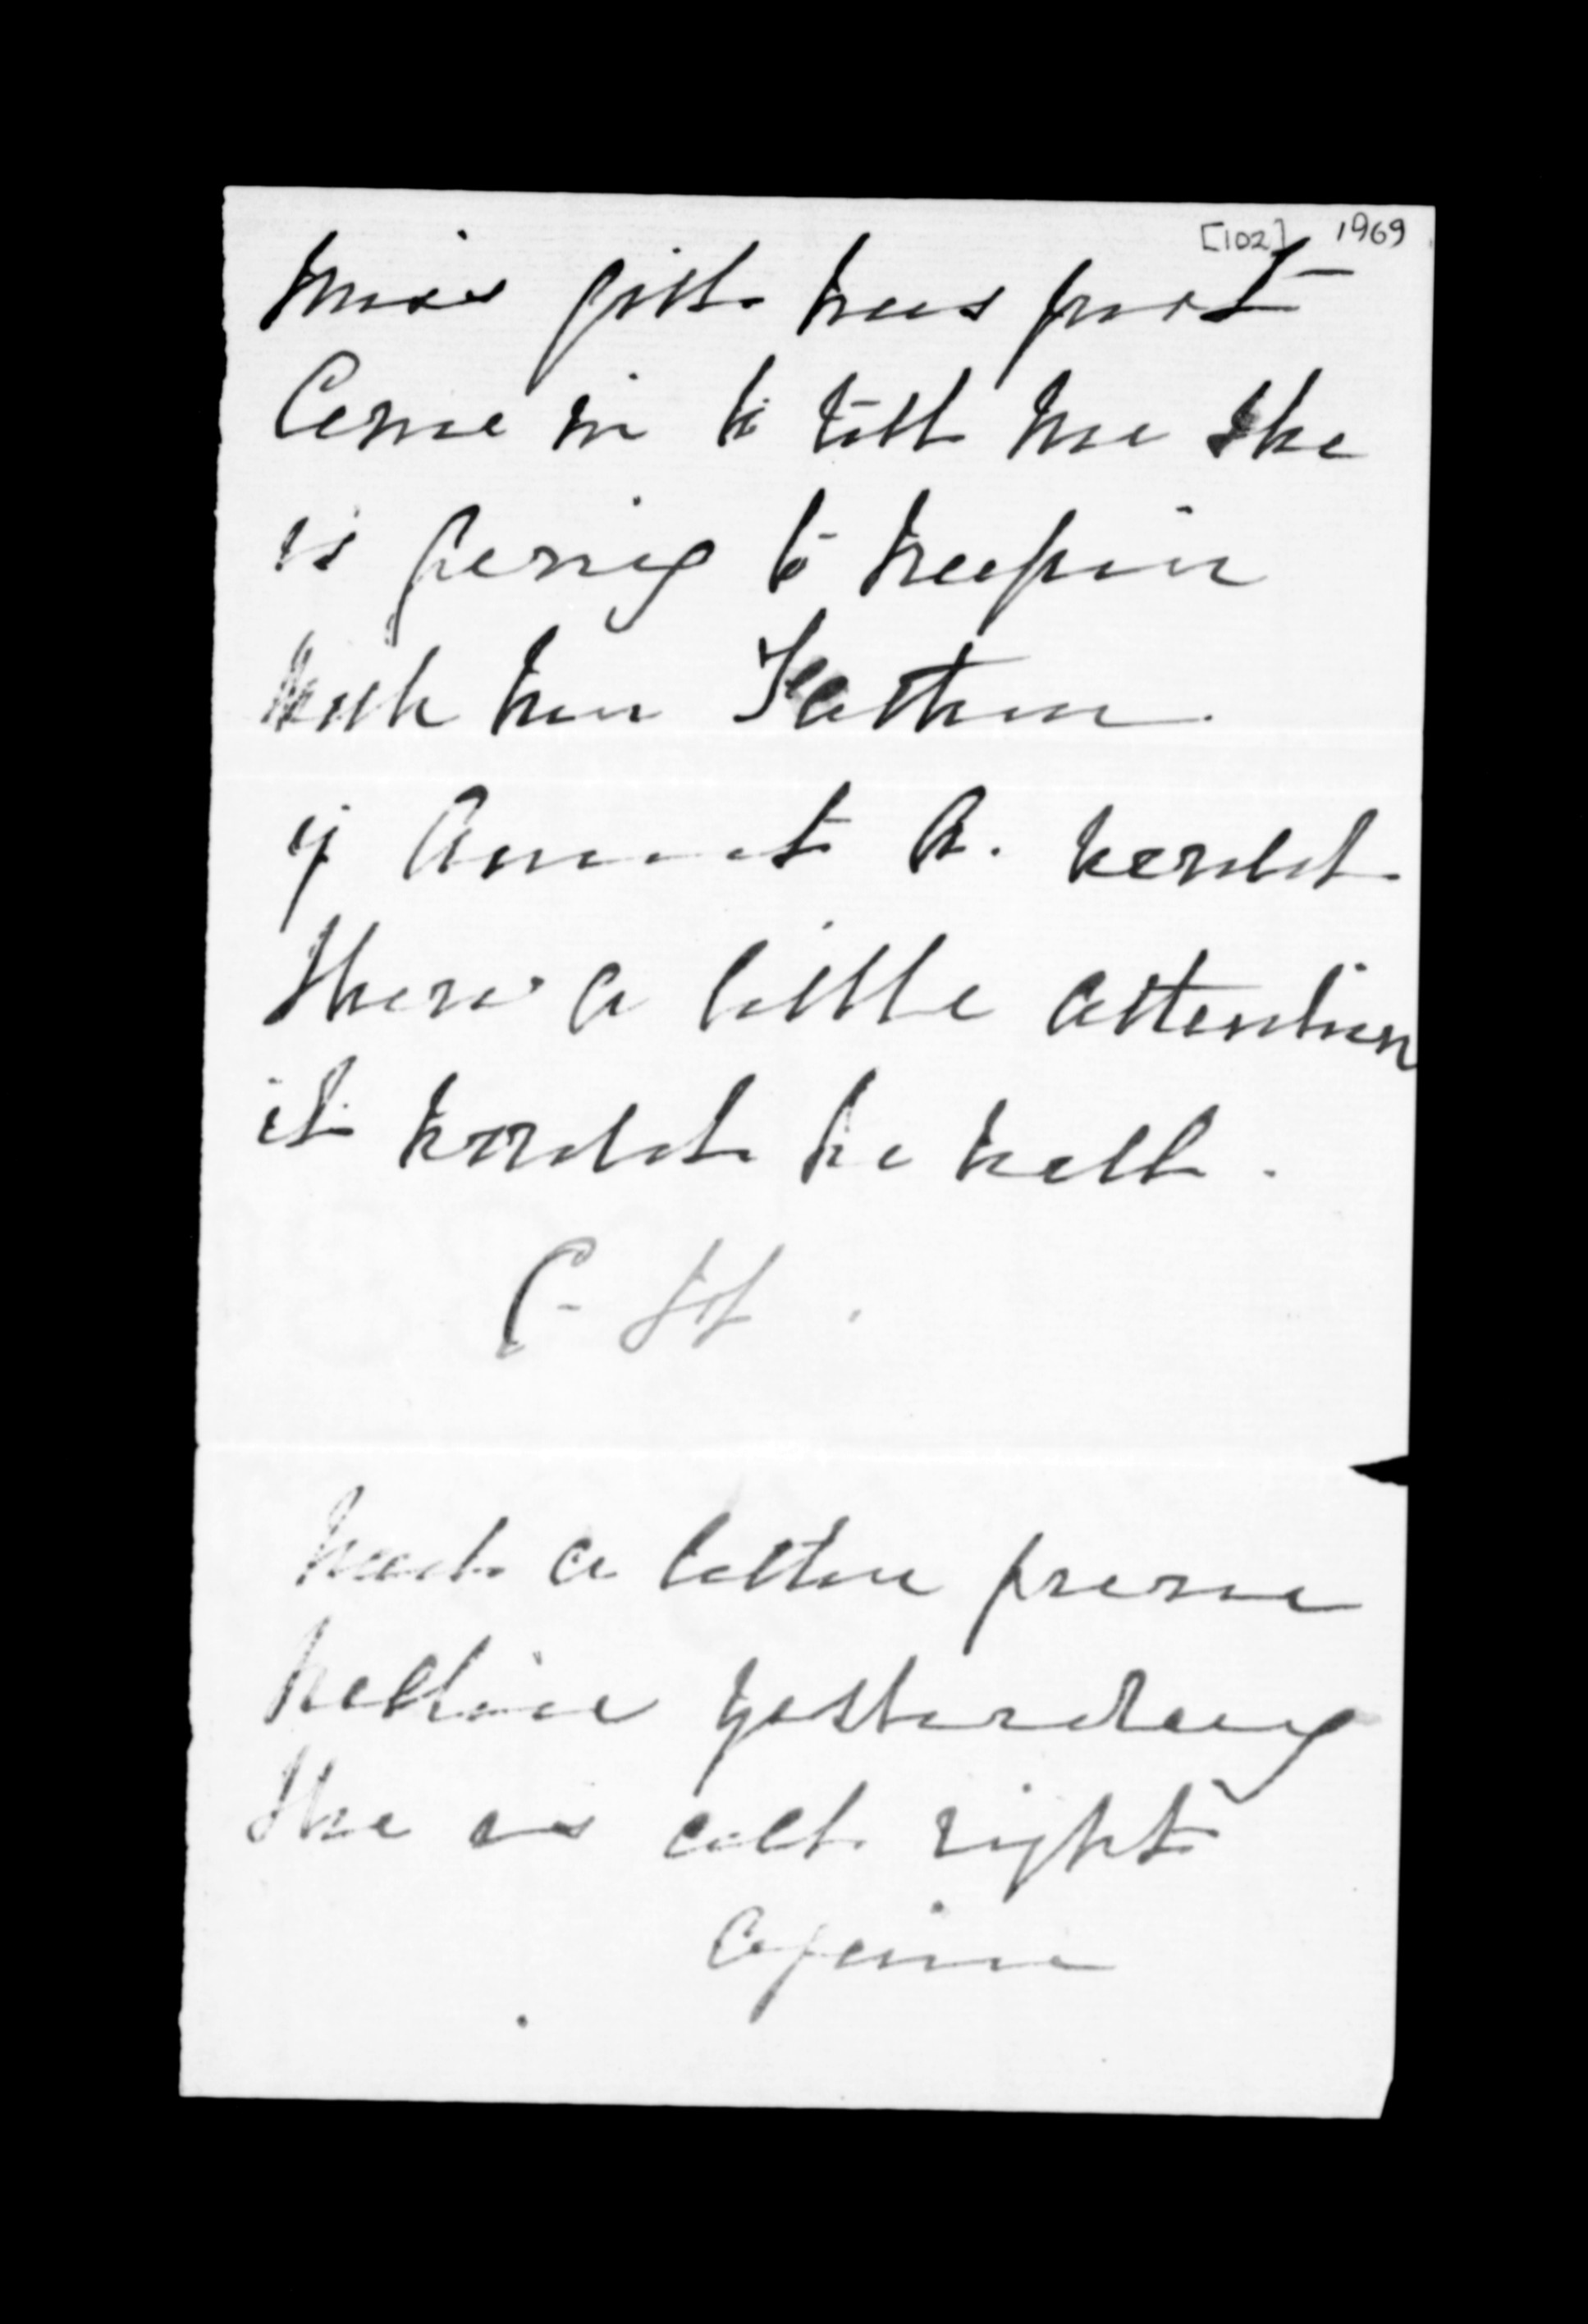 [102] 1969
Miss Gill has just
Come in to tell me she
is going to Napier
with her Father.
if Aunt A. would
show a little attention
it would be well.
C- H.
had a letter from
Nellie yesterday
She is all right
again